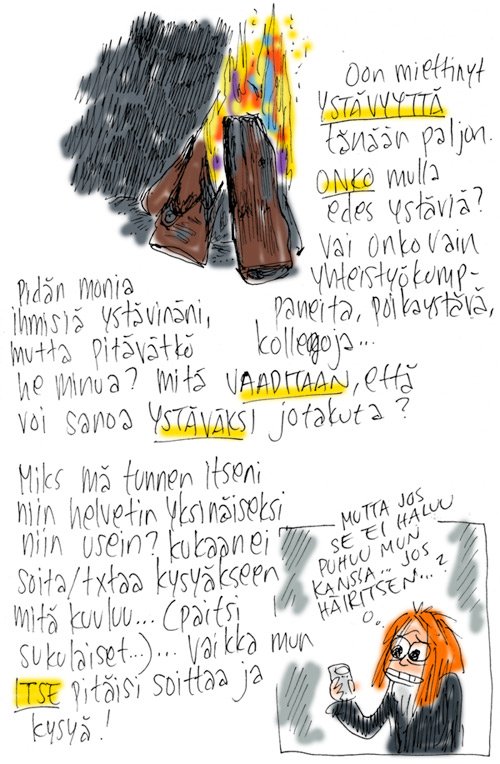 Oon miettinyt
YSTÄVYYTTÄ
tänään paljon.
ONKO mulla
edes ystäviä?
vai onko vain
yhteistyökump-
paneita, poikaystävä,
kollegoja...
Pidän monia
ihmisiä ystävinäni,
mutta pitävätkö
he minua? mitä VAADITAAN, että
voi sanoa YSTÄVÄKSI jotakuta?
Miks mä tunnen itseni
niin helvetin yksinäiseksi
niin usein? kukaan ei
soita/txtaa kysyäkseen
mitä kuuluu... (paitsi
sukulaiset...)... vaikka mun
ITSE pitäisi soittaa ja
kysyä!
MUTTA JOS
SE EI HALUU
PUHUU MUN
KANSSA... JOS
HÄIRITSEN...?